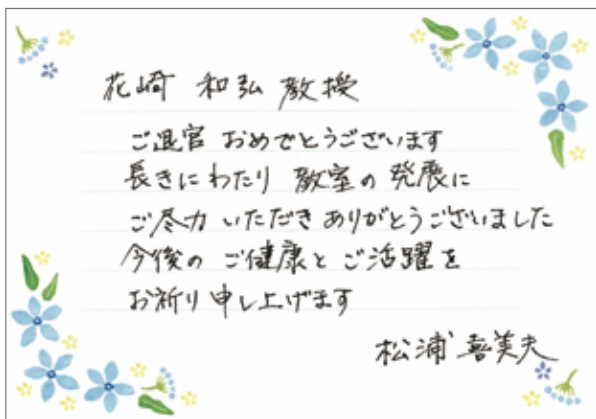 花崎 和弘 教授
ご退官 おめでとうございます
長きにわたり 教室の 発展に
ご尽力 いただき ありがとうございました
今後の ご健康と ご活躍を
お祈り申し上げます
松浦 喜美夫